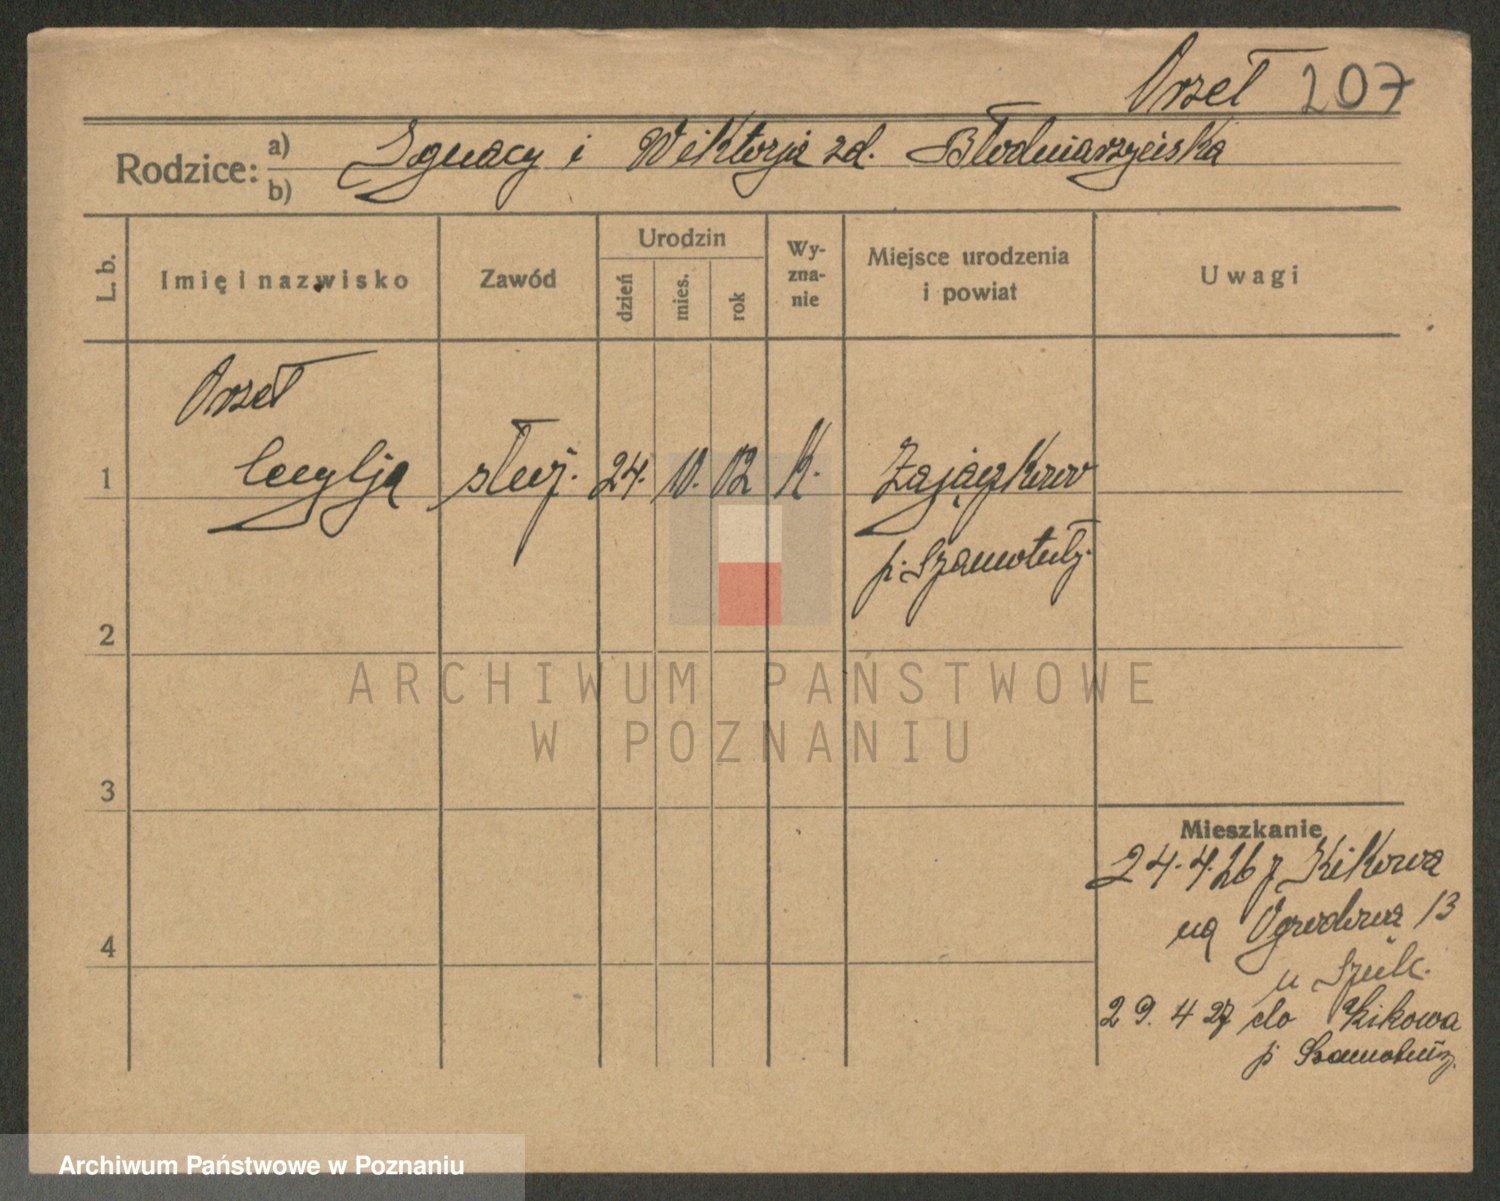 Orzeł 207
Rodzice: a) b) Ignacy i Wiktorja zd.
L. b.
Imię i nazwisko
Zawód
Urodzin
dzień
mies.
rok
Wy-
zna-
nie
Miejsce urodzenia
i powiat
Uwagi
Orzeł
1 Cecylja służ. 24. 10. 02 K. Zajączkowo
p. Szamotuły.
2
3
4
Mieszkanie
24.4.26 z Kikowa
na Ogrodowa 13
u
29. 4 27 do Kikowa
p Szamotuły
ARCHIWUM PAŃSTWOWE
W POZNANIU
Archiwum Państwowe w Poznaniu